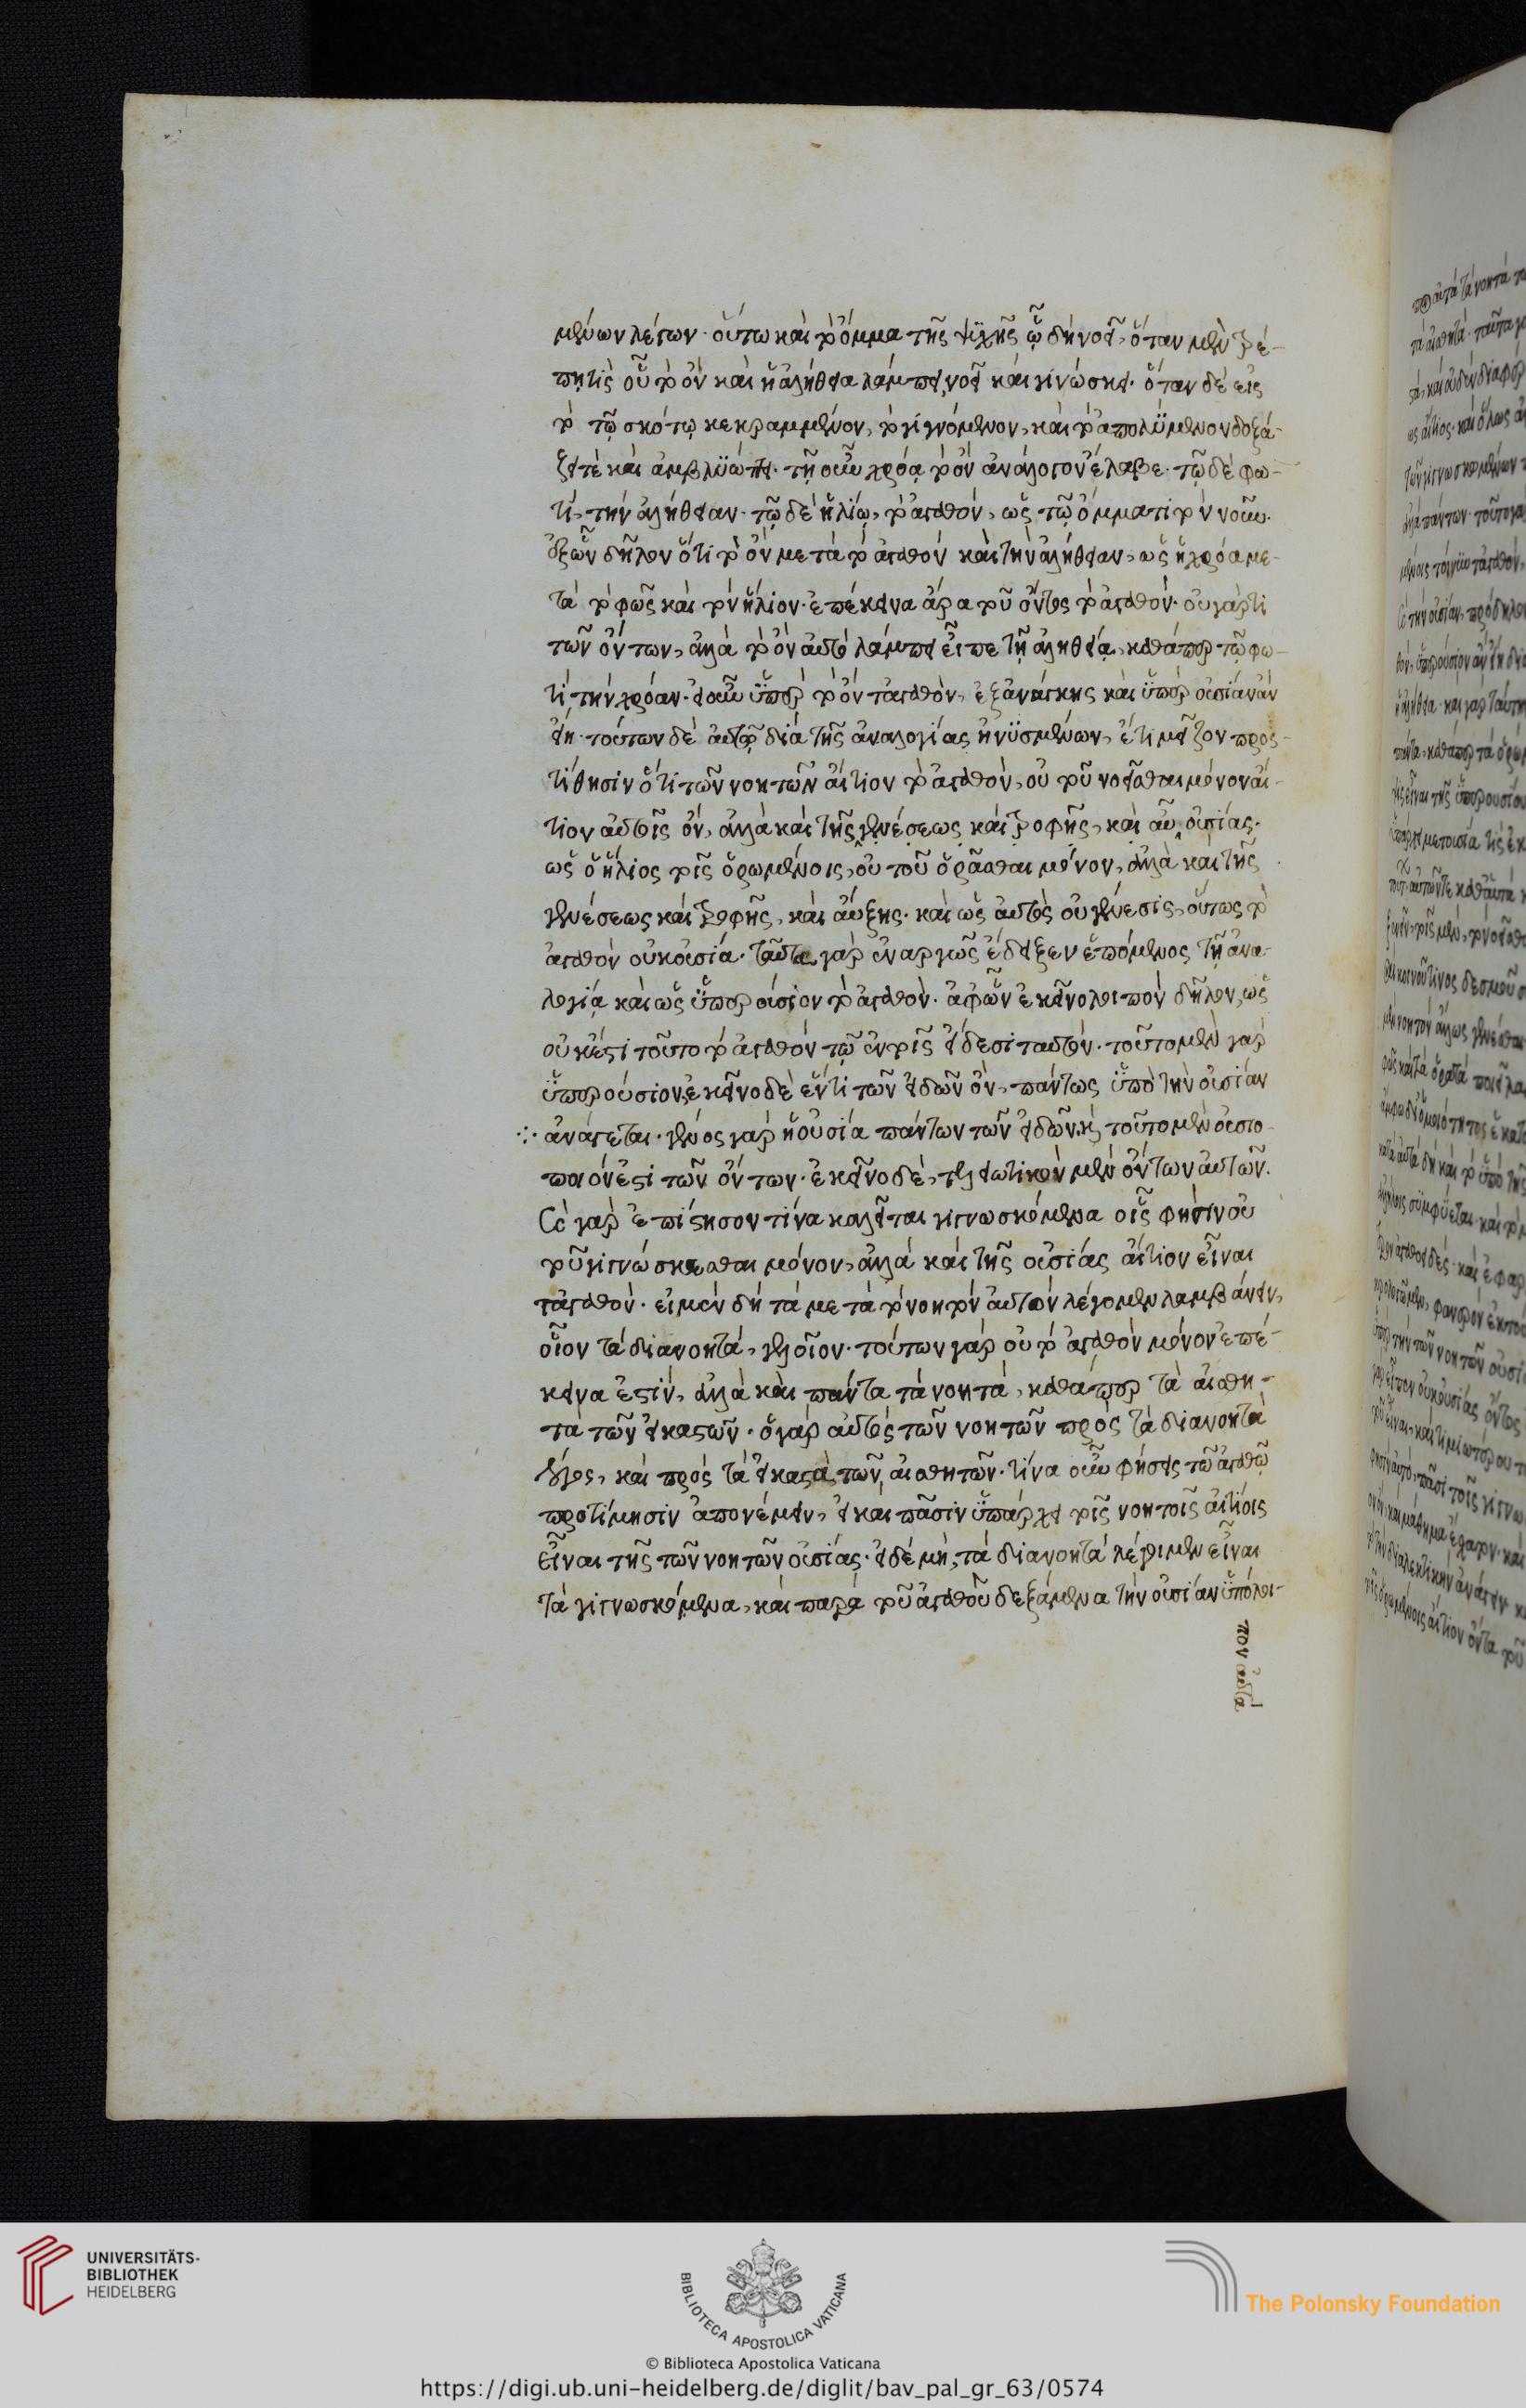 μένων λέγων· οὕτω καὶ τὸ ὄμμα τῆς ψυχῆς ᾧ δὴ νοεῖ, ὅταν μὲν τρέ-
πηται οὗ τὸ ὂν καὶ ἡ ἀλήθεια λάμπει, νοεῖ καὶ γινώσκει· ὅταν δὲ εἰς
τὸ τῷ σκότῳ κεκραμμένον, τὸ γιγνόμενον, καὶ τὸ ἀπολύμενον δοξά-
ζει τὲ καὶ ἀμβλυώττει. τῇ οὖν χρόᾳ τὸ ὂν ἀνάλογον ἔλαβε. τῷ δὲ φω-
τὶ, τὴν ἀλήθειαν. τῷ δὲ ἡλίῳ, τὸ ἀγαθόν, ὡς τῷ ὄμματι τὸν νοῦν.
ἐξ ὧν δῆλον ὅτι τὸ ὂν μετὰ τὸ ἀγαθὸν καὶ τὴν ἀλήθειαν, ὡς ἡ χρόα με-
τὰ τὸ φῶς καὶ τὸν ἥλιον· ἐπέκεινα ἄρα τοῦ ὄντος τὸ ἀγαθόν. οὐ γάρ τι
τῶν ὄντων, ἀλλὰ τὸ ὂν αὐτὸ λάμπει εἶπε τῇ ἀληθείᾳ, καθάπερ τῷ φω-
τὶ, τὴν χρόαν. εἰ οὖν ὑπὲρ τὸ ὂν τἀγαθὸν, ἐξ ἀνάγκης καὶ ὑπὲρ οὐσίαν ἂν
εἴη. τούτων δὲ αὐτῷ διὰ τῆς ἀναλογίας ἠνυσμένων, ἔτι μεῖζον προσ-
τίθησιν ὅτι τῶν νοητῶν αἴτιον τὸ ἀγαθὸν, οὐ τοῦ νοεῖσθαι μόνον αἴ-
τιον αὐτοῖς ὂν, ἀλλὰ καὶ τῆς γενέσεως καὶ τροφῆς, καὶ αὖ οὐσίας.
ὡς ὁ ἥλιος τοῖς ὁρωμένοις, οὐ τοῦ ὁρᾶσθαι μόνον, ἀλλὰ καὶ τῆς
γενέσεως καὶ τροφῆς, καὶ αὔξης. καὶ ὡς αὐτὸς οὐ γένεσις, οὕτως τὸ
ἀγαθὸν οὐκ οὐσία. ταῦτα γὰρ ἐναργῶς ἔδειξεν ἑπόμενος τῇ ἀνα-
λογίᾳ καὶ ὡς ὑπερούσιον τὸ ἀγαθόν. ἀφ' ὧν ἐκεῖνο λοιπὸν δῆλον, ὡς
οὐκ ἔστι τοῦτο τὸ ἀγαθὸν τῷ ἐν τοῖς εἴδεσι ταυτόν. τοῦτο μὲν γὰρ
ὑπερούσιον, ἐκεῖνο δὲ ἕν τι τῶν εἰδῶν ὂν, πάντως ὑπὸ τὴν οὐσίαν
∴ ἀνάγεται. γένος γὰρ ἡ οὐσία πάντων τῶν εἰδῶν. καὶ τοῦτο μὲν οὐσιο-
ποιόν ἐστι τῶν ὄντων. ἐκεῖνο δὲ, τελειωτικὸν μὲν ὄντων αὐτῶν.
Σὺ γὰρ ἐπίστησον τίνα καλεῖται γιγνωσκόμενα οἷς φησὶν οὐ
τοῦ γιγνώσκεσθαι μόνον, ἀλλὰ καὶ τῆς οὐσίας αἴτιον εἶναι
τἀγαθὸν. εἰ μὲν δὴ τὰ μετὰ τὸν νοητὸν αὐτὸν λέγομεν λαμβάνειν,
οἷον τὰ διανοητά, γελοῖον. τούτων γὰρ οὐ τὸ ἀγαθὸν μόνον ἐπέ-
κεινα ἐστὶν, ἀλλὰ καὶ πάντα τὰ νοητά, καθάπερ τὰ αἰσθη-
τὰ τῶν εἰκαστῶν. ὁ γὰρ αὐτὸς τῶν νοητῶν πρὸς τὰ διανοητὰ
λόγος, καὶ πρὸς τὰ εἰκαστὰ τῶν αἰσθητῶν. τίνα οὖν φήσεις τῷ ἀγαθῷ
προτίμησιν ἀπονέμειν, εἰ καὶ πᾶσιν ὑπάρχει τοῖς νοητοῖς αἰτίοις
εἶναι τῆς τῶν νοητῶν οὐσίας. εἰ δὲ μὴ, τὰ διανοητὰ λέγοιμεν εἶναι
τὰ γιγνωσκόμενα, καὶ παρὰ τοῦ ἀγαθοῦ δεξάμενα τὴν οὐσίαν ὑπόλοι-
πον αὐτὰ
UNIVERSITÄTS-
BIBLIOTHEK
HEIDELBERG
BIBLIOTECA APOSTOLICA VATICANA
The Polonsky Foundation
© Biblioteca Apostolica Vaticana
https://digi.ub.uni-heidelberg.de/diglit/bav_pal_gr_63/0574